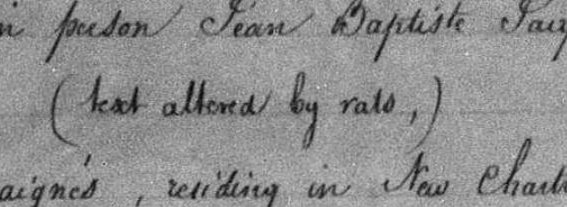 in person Jean Baptiste
(text altered by rats,)
aignés, residing in New